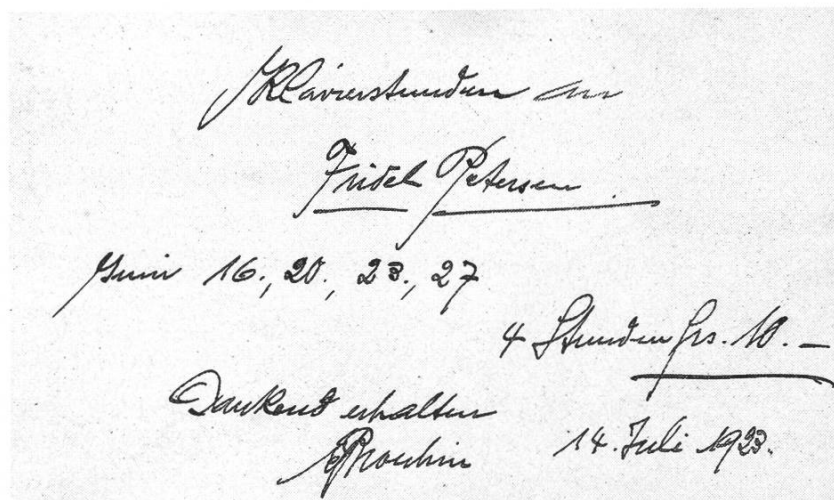 Klavierstunden an
Fridel Petersen
Juni 16., 20., 23., 27
4 Stunden frs. 10.—
Dankend erhalten
14. Juli 1923.